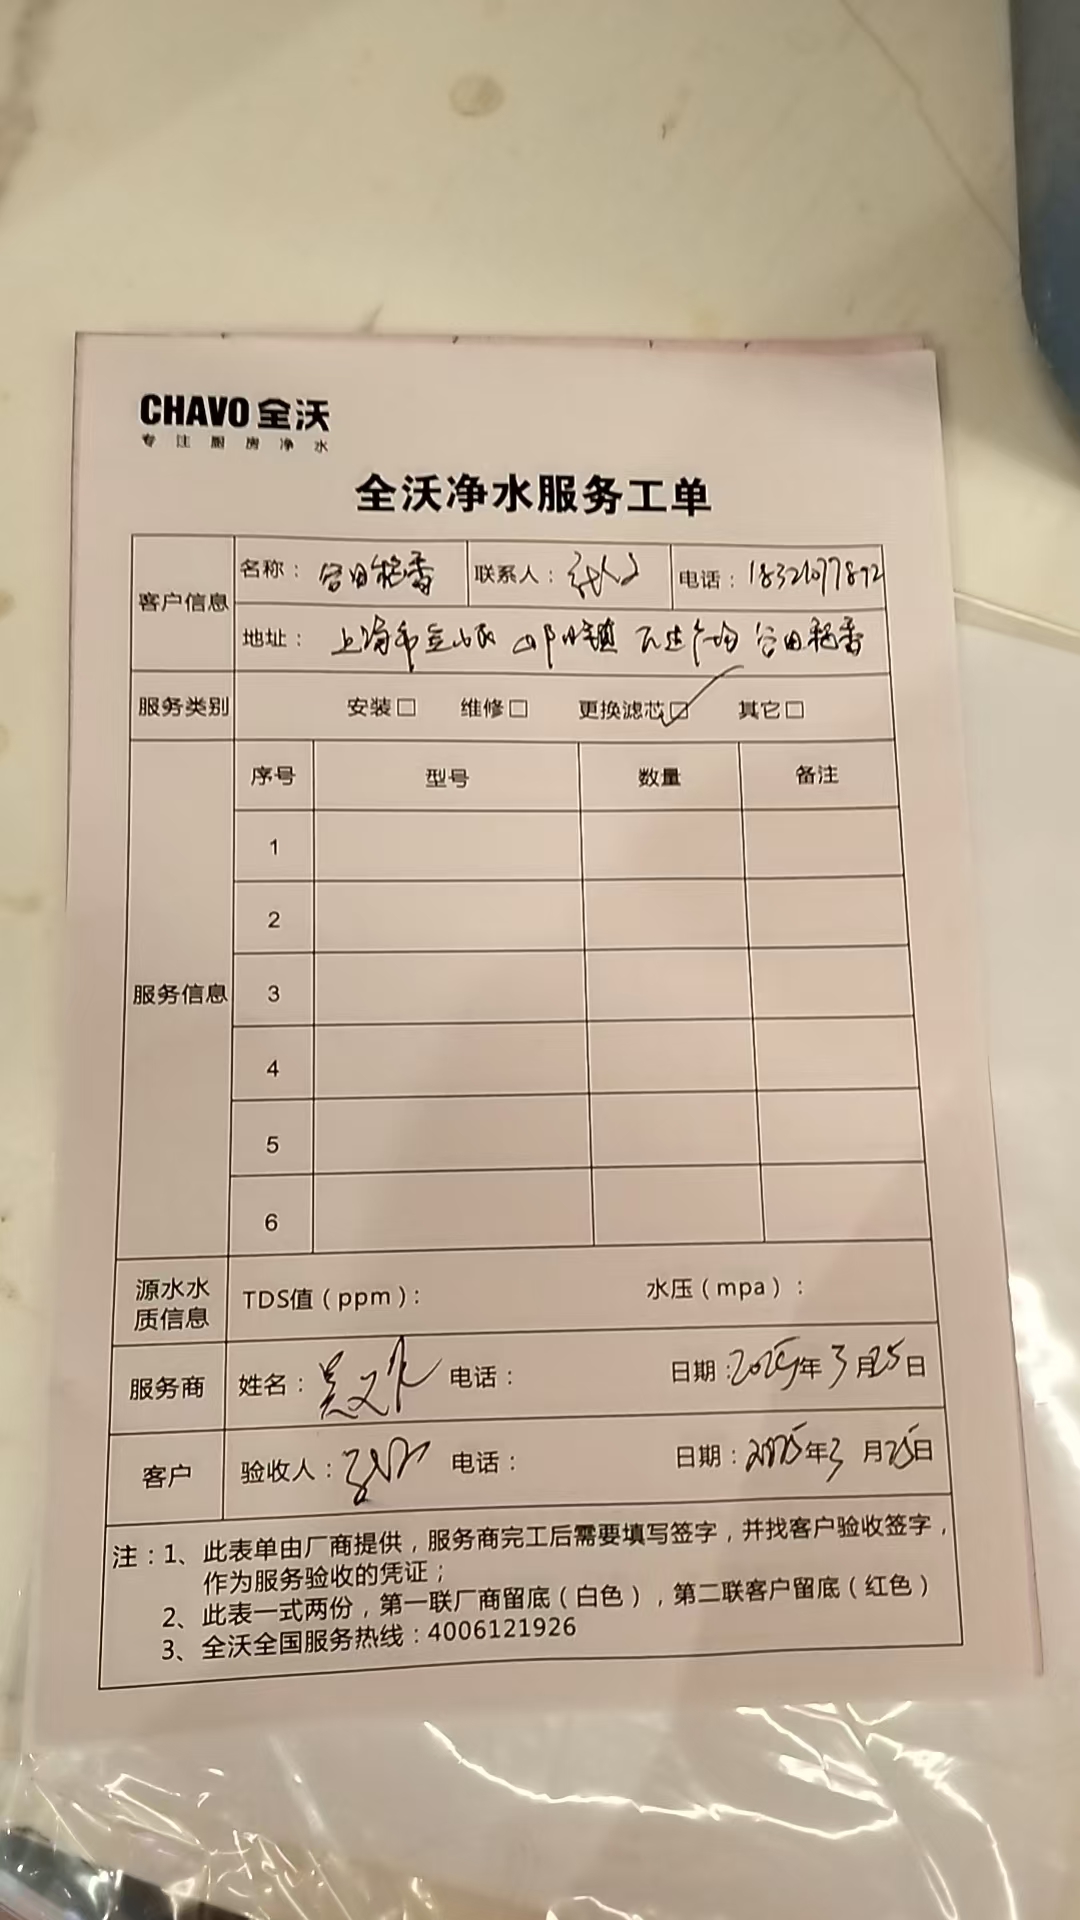 CHAVO 全沃
专注厨房净水
全沃净水服务工单
客户信息 名称： 谷田稻香 联系人： 电话：18321077892
地址： 上海市宝山区 镇 万达广场 谷田稻香
服务类别 安装□ 维修□ 更换滤芯□✓ 其它□
服务信息 序号 型号 数量 备注
1
2
3
4
5
6
源水水质信息 TDS值（ppm）： 水压（mpa）：
服务商 姓名： 电话： 日期：2025年3月25日
客户 验收人： 电话： 日期：2025年3月25日
注：1、此表单由厂商提供，服务商完工后需要填写签字，并找客户验收签字，
作为服务验收的凭证；
2、此表一式两份，第一联厂商留底（白色），第二联客户留底（红色）
3、全沃全国服务热线：4006121926